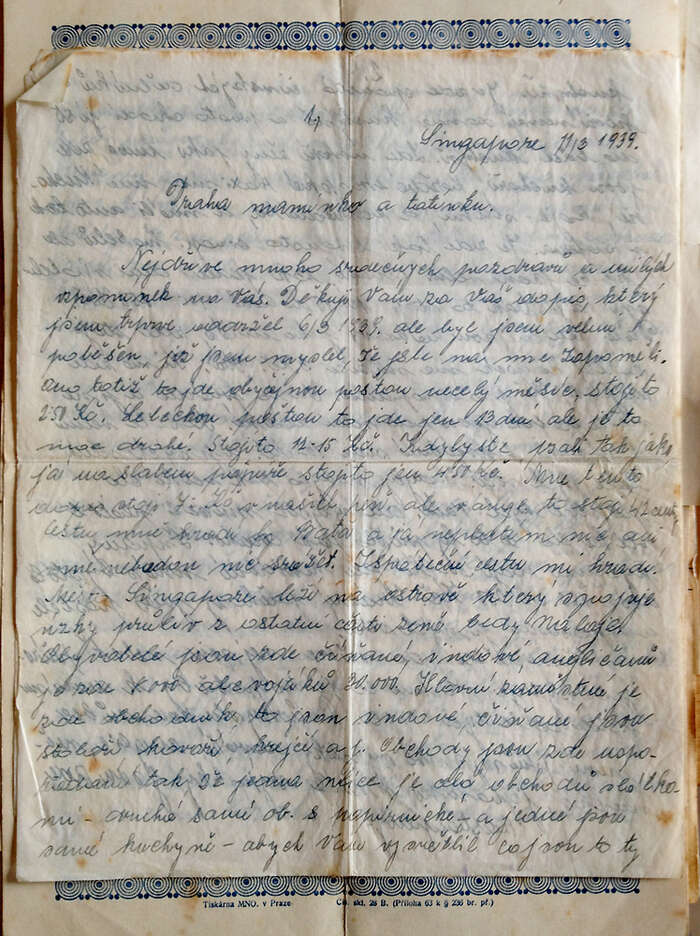 1,
Singapore 11/3 1939.
Drahá maminko a tatínku.
Nejdříve mnoho srdečných pozdravů a milých
vzpomínek na Vás. Děkuji Vám za Váš dopis, který
jsem teprve 6/3 1939. ale byl jsem velmi
potěšen, již jsem myslel, že jste na mne zapoměli.
ono totiž to jde obyčejnou poštou necelý měsíc, stojí to
250 Kč. Leteckou poštou to jde jen 13 dní ale je to
moc drahé. Stojí to 12-15 Kč. Kdybyste psali tak jako
já na slabém papíře stojí to jen 450 Kč. Mne tento
dopis stojí 7. Kč v našich ale v angl. to stojí 42 centů
cestu mně hradí fy Bata a já neplatím nic ani
mně nebudou nic srážet. Zpáteční cestu mi hradí.
Město Singapore leží na ostrově který spojuje
úzký průliv z ostatní částí země tedy Malaja.
Obyvatelé jsou zde číňané, indové angličanů
je zde 8000 ale vojáků 20.000. Hlavní zaměstnání je
zde obchodník, to jsou indové, číňané jsou
stolaři kovaři, krejčí a p. Obchody jsou zde uspo-
řádané tak že jedna ulice je celá obchodů s látka
mi - druhá samé ob. s papírnické - a jedné jsou
samé kuchyně - abych Vám vysvětlil co jsou to ty
Tiskárna MNO. v Praze. Čís. skl. 28 B. (Příloha 63 k § 236 br. př.)